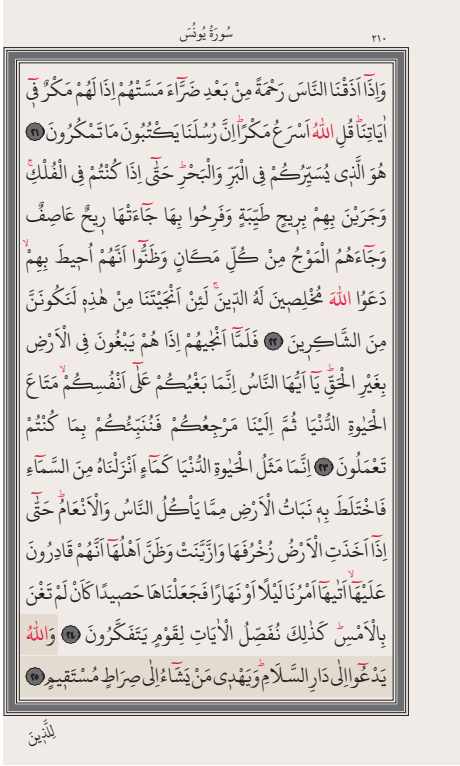 سُورَةُ يُونُسَ ٢١٠
وَاِذَٓا اَذَقْنَا النَّاسَ رَحْمَةً مِنْ بَعْدِ ضَرَّٓاءَ مَسَّتْهُمْ اِذَا لَهُمْ مَكْرٌ فٖٓي
اٰيَاتِنَاؕ قُلِ اللّٰهُ اَسْرَعُ مَكْراًؕ اِنَّ رُسُلَنَا يَكْتُبُونَ مَا تَمْكُرُونَ ٢١
هُوَ الَّذٖي يُسَيِّرُكُمْ فِي الْبَرِّ وَالْبَحْرِؕ حَتّٰٓى اِذَا كُنْتُمْ فِي الْفُلْكِۚ
وَجَرَيْنَ بِهِمْ بِرٖيحٍ طَيِّبَةٍ وَفَرِحُوا بِهَا جَٓاءَتْهَا رٖيحٌ عَاصِفٌ
وَجَٓاءَهُمُ الْمَوْجُ مِنْ كُلِّ مَكَانٍ وَظَنُّٓوا اَنَّهُمْ اُحٖيطَ بِهِمْۙ
دَعَوُا اللّٰهَ مُخْلِصٖينَ لَهُ الدّٖينَۚ لَئِنْ اَنْجَيْتَنَا مِنْ هٰذِهٖ لَنَكُونَنَّ
مِنَ الشَّاكِرٖينَ ٢٢ فَلَمَّٓا اَنْجٰيهُمْ اِذَا هُمْ يَبْغُونَ فِي الْاَرْضِ
بِغَيْرِ الْحَقِّؕ يَٓا اَيُّهَا النَّاسُ اِنَّمَا بَغْيُكُمْ عَلٰٓى اَنْفُسِكُمْۙ مَتَاعَ
الْحَيٰوةِ الدُّنْيَا ثُمَّ اِلَيْنَا مَرْجِعُكُمْ فَنُنَبِّئُكُمْ بِمَا كُنْتُمْ
تَعْمَلُونَ ٢٣ اِنَّمَا مَثَلُ الْحَيٰوةِ الدُّنْيَا كَمَٓاءٍ اَنْزَلْنَاهُ مِنَ السَّمَٓاءِ
فَاخْتَلَطَ بِهٖ نَبَاتُ الْاَرْضِ مِمَّا يَاْكُلُ النَّاسُ وَالْاَنْعَامُؕ حَتّٰٓى
اِذَٓا اَخَذَتِ الْاَرْضُ زُخْرُفَهَا وَازَّيَّنَتْ وَظَنَّ اَهْلُهَٓا اَنَّهُمْ قَادِرُونَ
عَلَيْهَٓاۙ اَتٰيهَٓا اَمْرُنَا لَيْلاً اَوْ نَهَاراً فَجَعَلْنَاهَا حَصٖيداً كَاَنْ لَمْ تَغْنَ
بِالْاَمْسِؕ كَذٰلِكَ نُفَصِّلُ الْاٰيَاتِ لِقَوْمٍ يَتَفَكَّرُونَ ٢٤ وَاللّٰهُ
يَدْعُٓوا اِلٰى دَارِ السَّلَامِؕ وَيَهْدٖي مَنْ يَشَٓاءُ اِلٰى صِرَاطٍ مُسْتَقٖيمٍ ٢٥
لِلَّذٖينَ